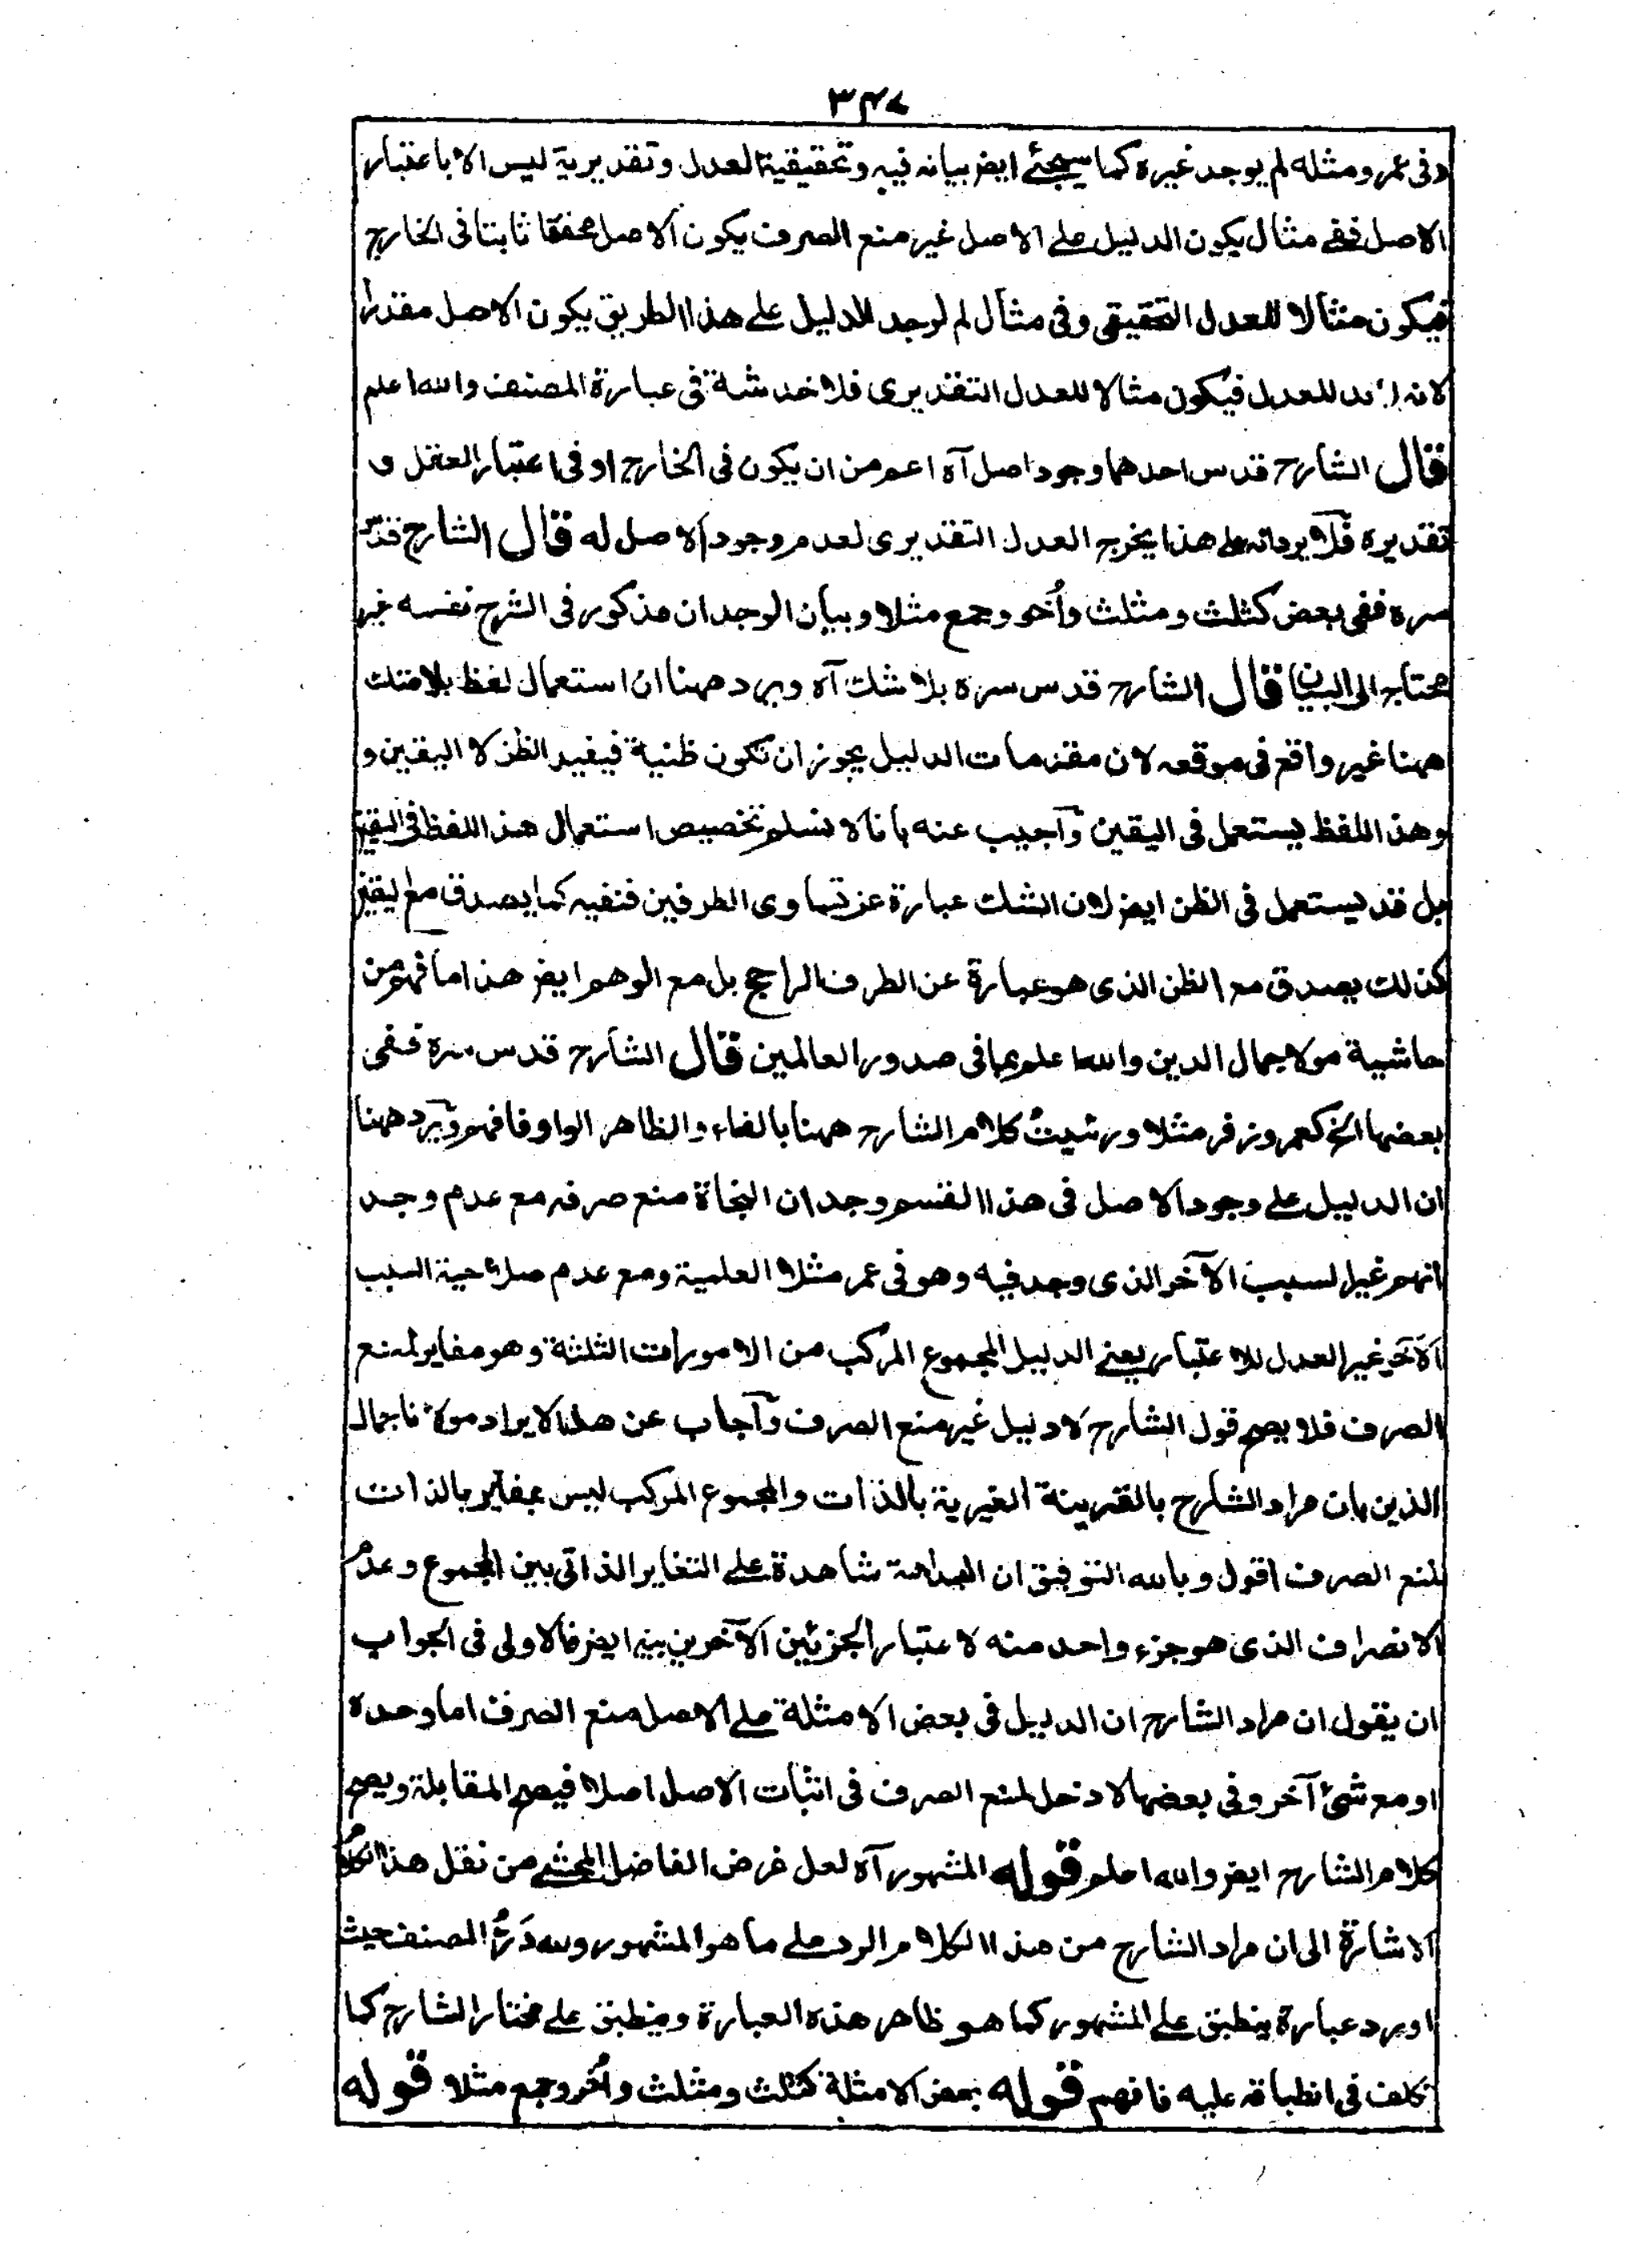 ۳۴۷
وفی عمر ومثله لم یوجد غیره کما سیجئ ایض بیانه فیه وتحقیقیة العدل وتقدیریة لیس الا باعتبار
الاصل ففی مثال یکون الدلیل علی الاصل غیر منع الصرف یکون الاصل محققا ثابتا فی الخارج
فیکون مثالا للعدل التحقیقی وفی مثال لم یوجد الدلیل علی هذا الطریق یکون الاصل مقدرا
لانه لابد للعدل فیکون مثالا للعدل التقدیری فلا خدشة فی عبارة المصنف والله اعلم
قال الشارح قدس احدهما وجود اصل آه اعم من ان یکون فی الخارج او فی اعتبار العقل و
تقدیره فلا یرد انه علی هذا یخرج العدل التقدیری لعدم وجود الاصل له قال الشارح قدس
سره ففی بعض کثلث ومثلث وأخر وجمع مثلا وبیان الوجدان مذکور فی الشرح نفسه غیر
محتاج الی البیان قال الشارح قدس سره بلا شک آه ویرد ههنا ان استعمال لفظ بلا شک
ههنا غیر واقع فی موقعه لان مقدمات الدلیل یجوز ان تکون ظنیة فیفید الظن لا الیقین و
وهذا اللفظ یستعمل فی الیقین وآجیب عنه بانا لا نسلم تخصیص استعمال هذا اللفظ فی الیقین
بل قد یستعمل فی الظن ایض لان الشک عبارة عن تساوی الطرفین فنفیه کما یصدق مع الیقین
کذلک یصدق مع الظن الذی هو عبارة عن الطرف الراجح بل مع الوهم ایض هذا ما فهم من
حاشیة مولا جمال الدین والله اعلم بما فی صدور العالمین قال الشارح قدس سره ففی
بعضها الخ کعمر وزفر مثلا ورئیت کلام الشارح ههنا بالفاء والظاهر الواو فافهم ویرد ههنا
ان الدلیل علی وجود الاصل فی هذا القسم وجدان النحاة منع صرفه مع عدم وجد
انهم غیر السبب الآخر الذی وجد فیه وهو فی عمر مثلا العلمیة ومع عدم صلاحیة السبب
الآخر غیر العدل للاعتبار یعنی الدلیل المجموع المرکب من الامورات الثلثة وهو مغایر لمنع
الصرف فلا یصح قول الشارح لا دلیل غیر منع الصرف وآجاب عن هذا الایراد مولانا جمال
الدین بان مراد الشارح بالقرینة الغیریة بالذات والمجموع المرکب لیس بمغایر بالذات
لمنع الصرف اقول وبالله التوفیق ان البداهة شاهدة علی التغایر الذاتی بین المجموع وعدم
الانصراف الذی هو جزء واحد منه لاعتبار الجزئین الآخرین بینه ایض فالاولی فی الجواب
ان یقول ان مراد الشارح ان الدلیل فی بعض الامثلة علی الاصل منع الصرف اما وحده
او مع شئ آخر وفی بعضها لا دخل لمنع الصرف فی اثبات الاصل اصلا فیصح المقابلة ویصح
کلام الشارح ایض والله اعلم قوله المشهور آه لعل غرض الفاضل المحشی من نقل هذا
الاشارة الی ان مراد الشارح من هذا الکلام الرد علی ما هو المشهور ولله دَرُّ المصنف حیث
اورد عبارة ینطبق علی المشهور کما هو ظاهر هذه العبارة وینطبق علی مختار الشارح کما
تکلف فی انطباقه علیه فافهم قوله بعض الامثلة کثلث ومثلث وأخر وجمع مثلا قوله